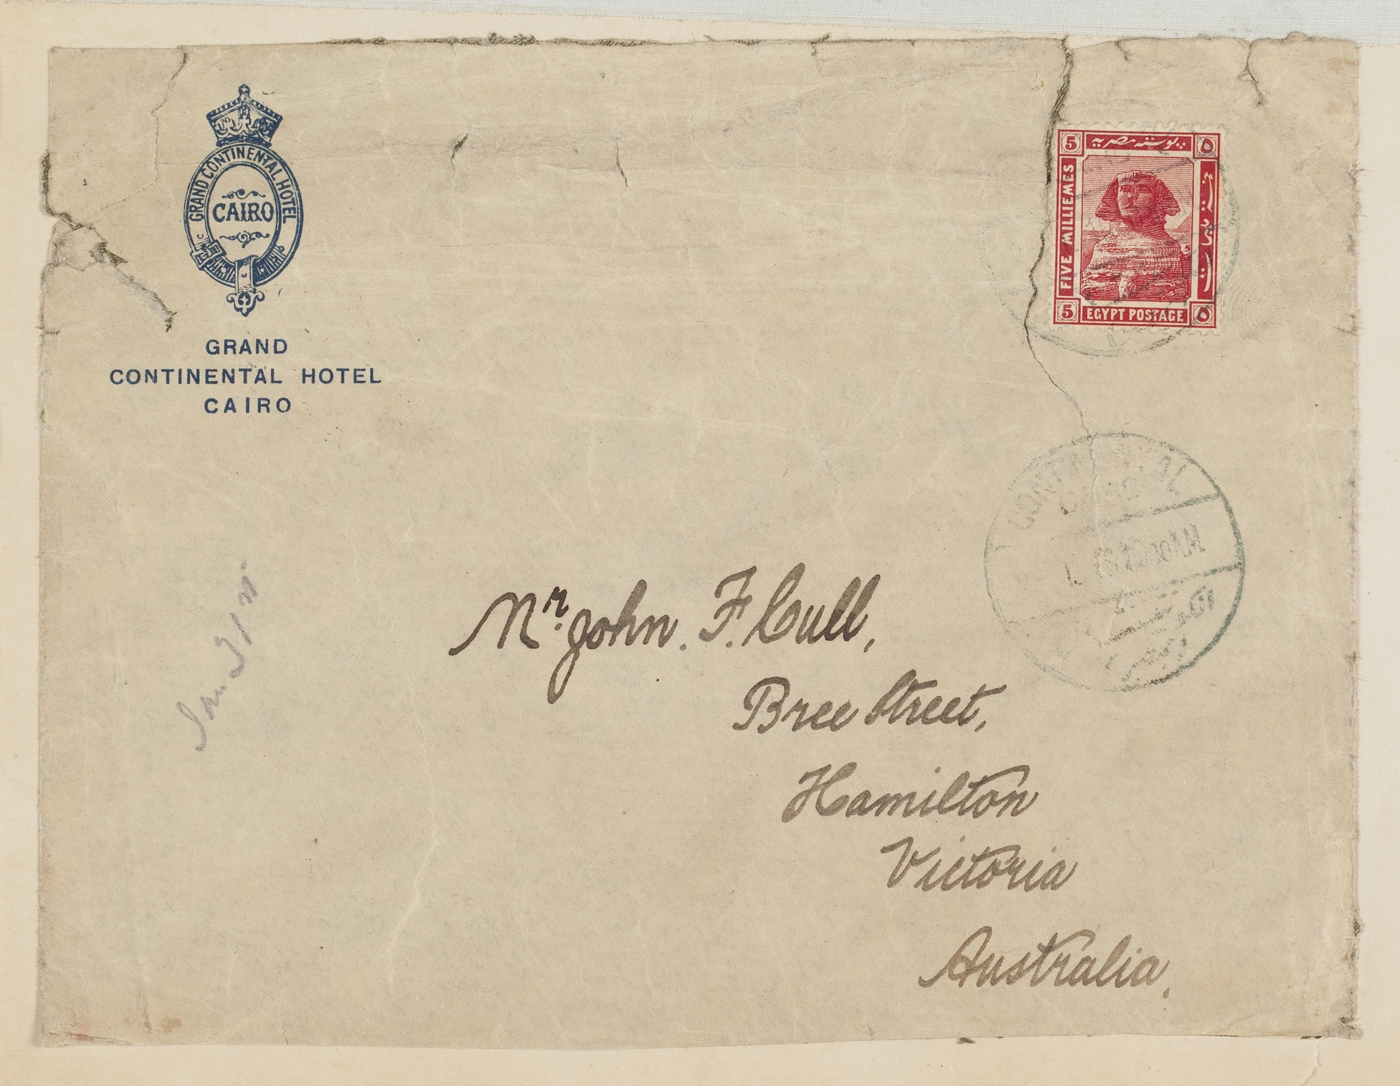 GRAND CONTINENTAL HOTEL
CAIRO
GRAND
CONTINENTAL HOTEL
CAIRO
5 بوسته مصريه ٥
FIVE MILLIEMES
5 EGYPT POSTAGE ٥
CONTINENTAL
CAIRO
10 AM
Mr. John. F. Cull,
Bree Street,
Hamilton
Victoria
Australia.